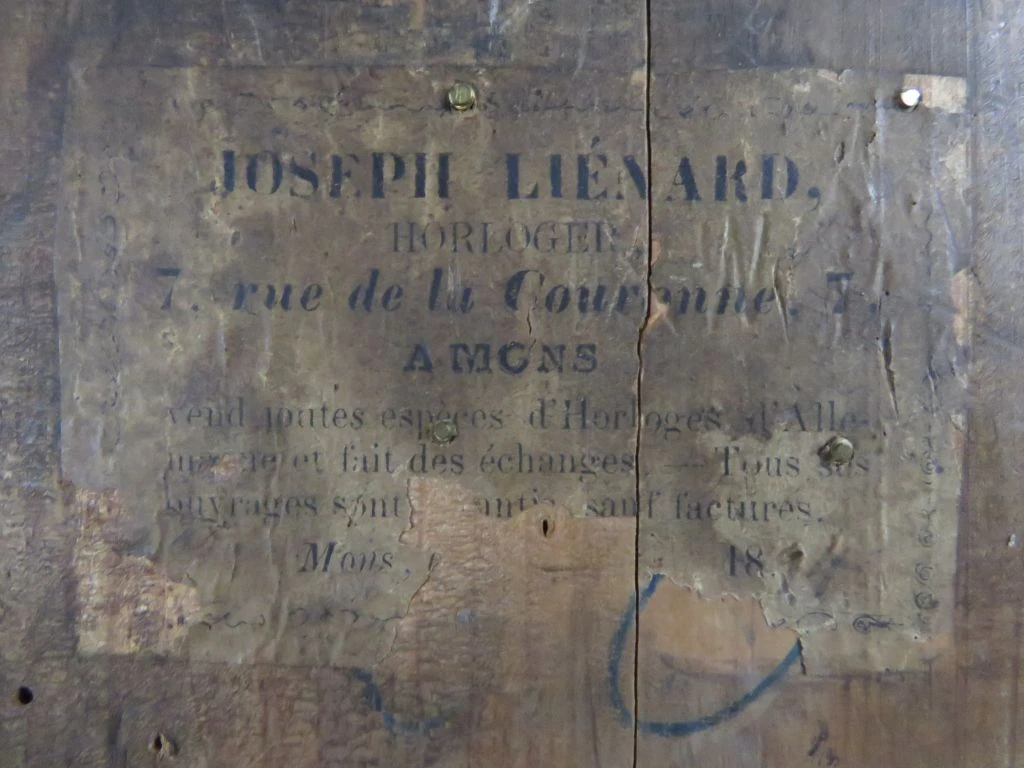 JOSEPH LIÉNARD,
HORLOGER,
7, rue de la Couronne, 7,
A MONS
vend toutes espèces d'Horloges d'Alle-
magne et fait des échanges. — Tous ses
ouvrages sont garantis sauf factures.
Mons, 18